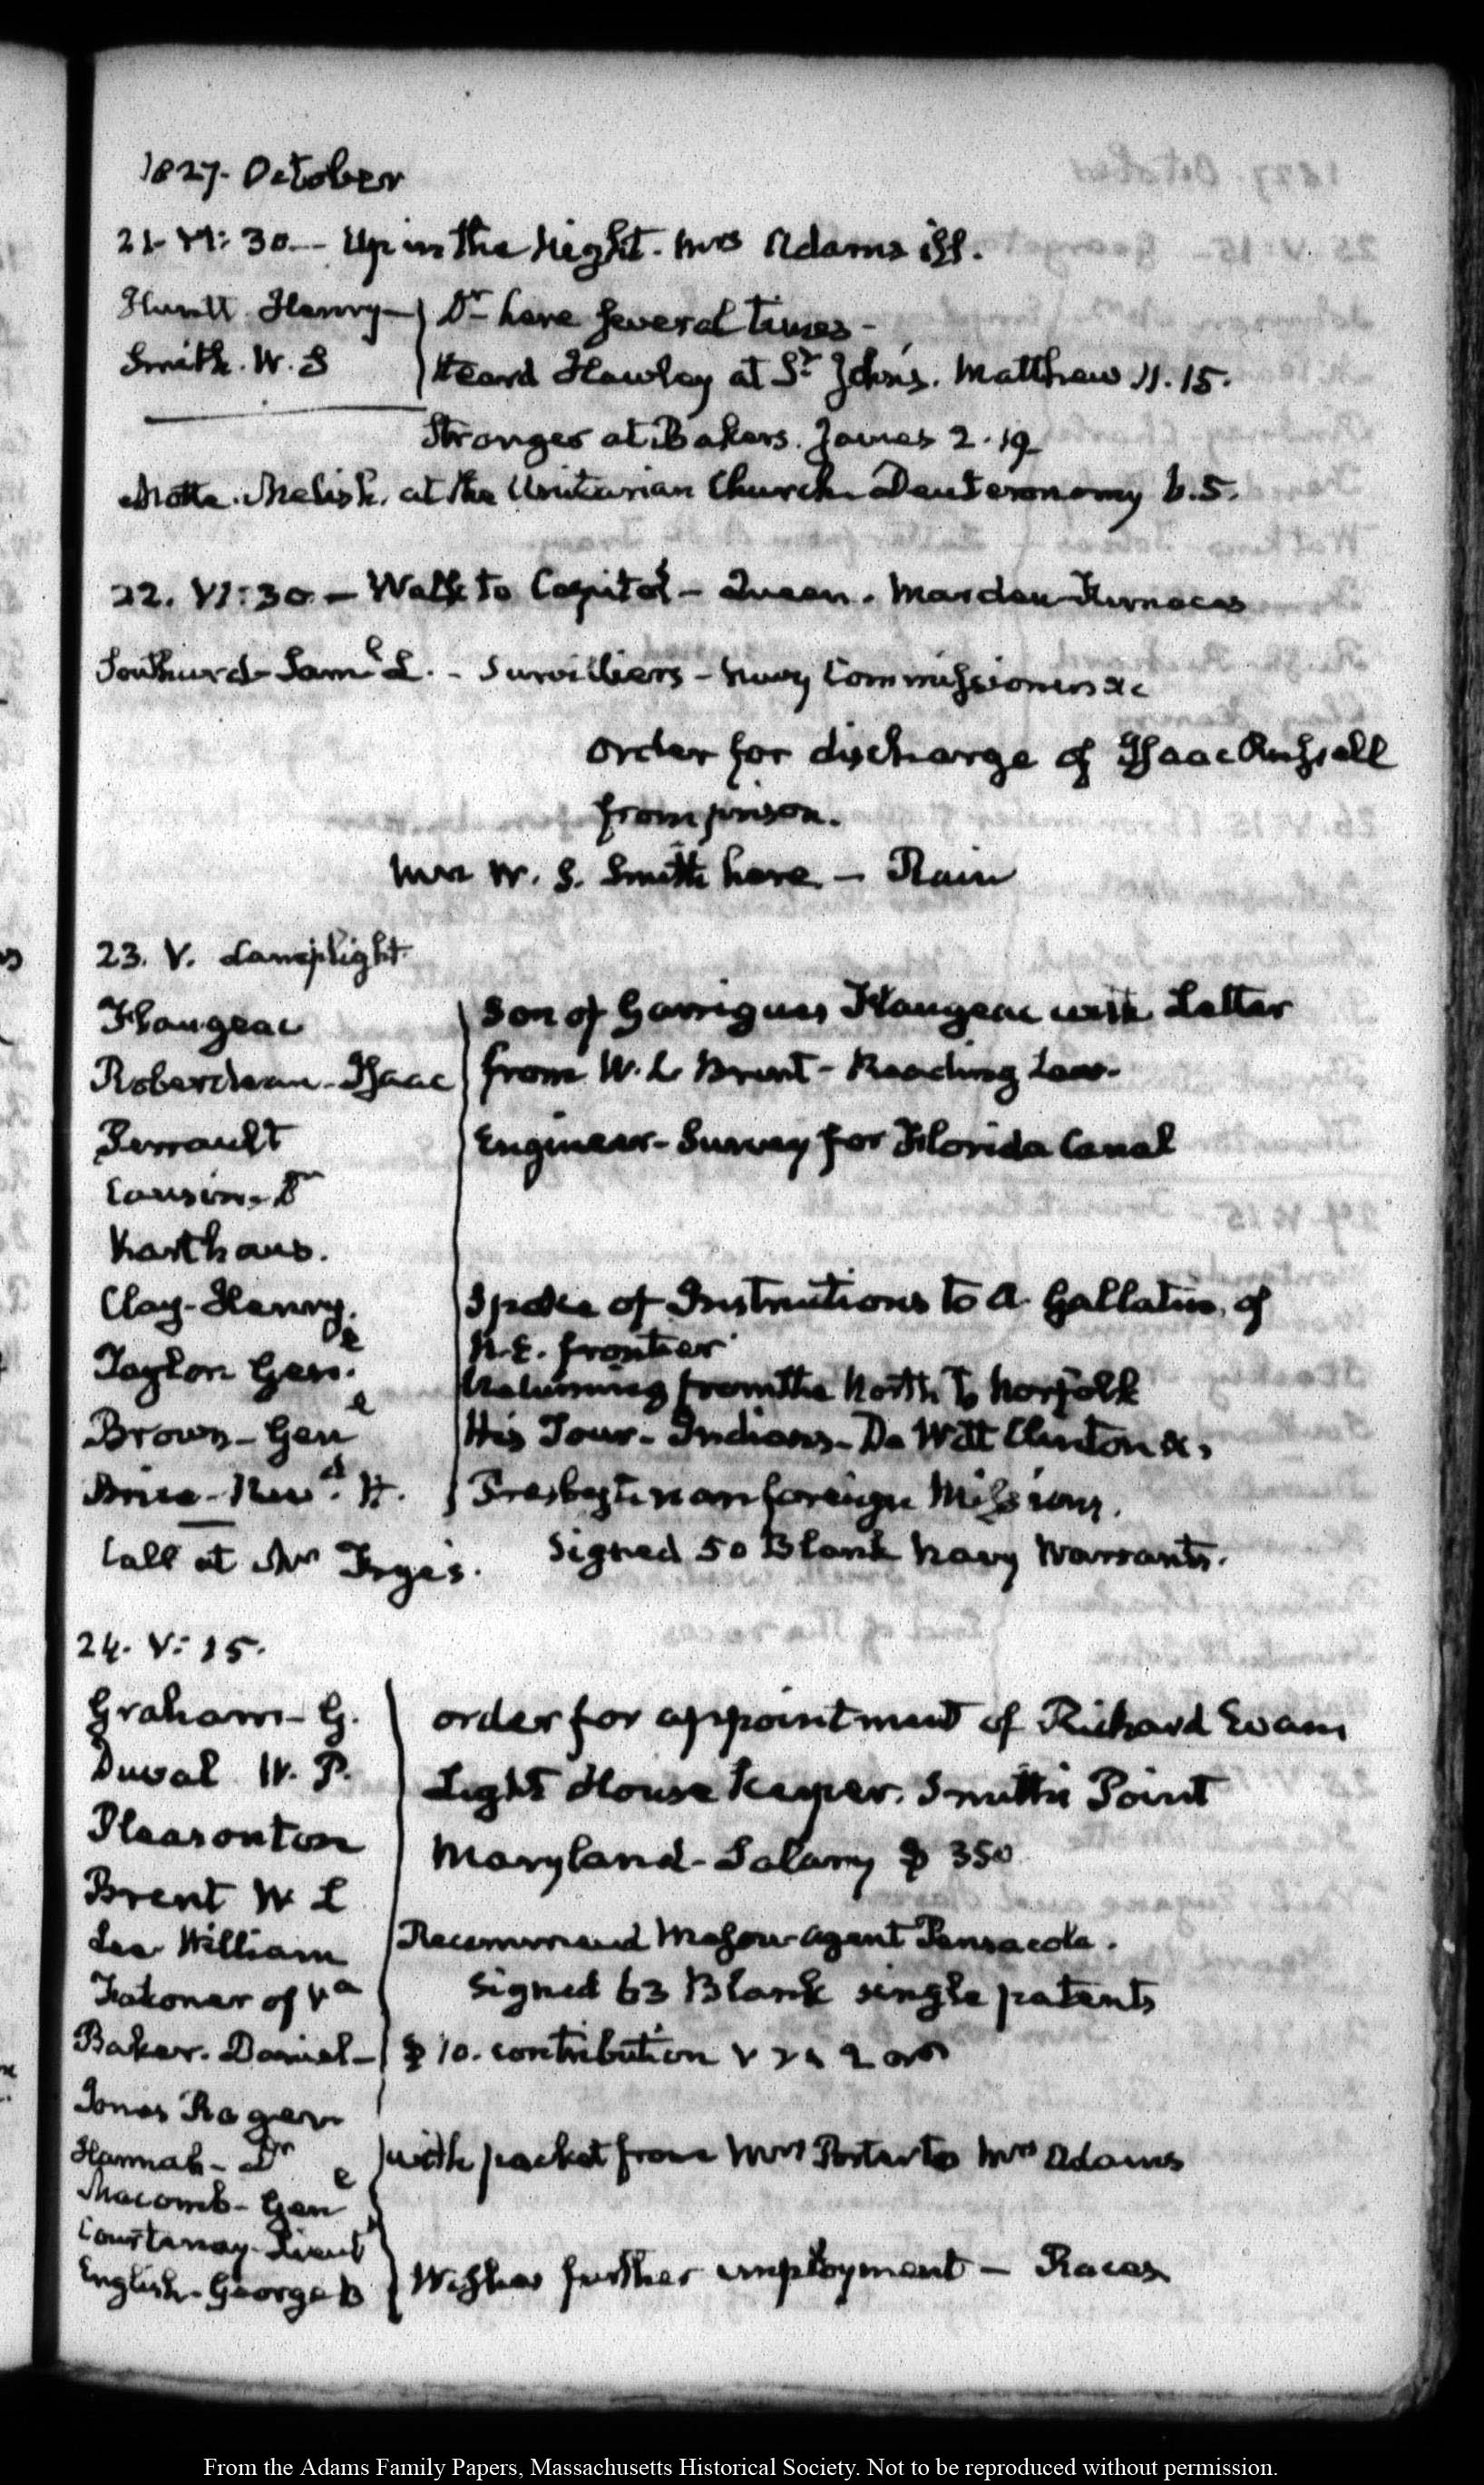 1827. October
21. VI: 30. Up in the Night. Mrs Adams ill.
Huntt Henry Dr here several times
Smith. W. S Heard Hawley at St John's. Matthew 11. 15.
at Bakers. James 2. 19
Motte. at the Unitarian Church Deuteronomy 6. 5.
22. VI: 30 — Walk to Capitol — Queen.
Southard Saml L. - Survilliers - Navy Commissioners &c
order for discharge of Isaac Russell
from prison.
Mrs W. S. Smith here. — Rain
23. V. Lamplight
Flaugeac Son of Garrigues Flaugeac with Letter
Roberdeau - Isaac from W. L Brent - Reading Law.
Perrault Engineer - Survey for Florida Canal
Cousin, Dr
Karthaus.
Clay - Henry. Spoke of Instructions to A Gallatin, of
N.E. frontier
Taylor Genl. Returning from the North to Norfolk
Brown - Genl His Tour - Indians - De Witt Clinton &c,
Revd. H. Presbyterian foreign Missions.
Call at Mr Frye's. Signed 50 Blank Navy Warrants.
24. V: 15.
Graham - G. order for appointment of Richard Evans
Duval W. P. Light House Keeper. Smith's Point
Pleasonton Maryland - Salary $ 350
Brent W L
Lee William Recommend agent Pensacola.
Falconer of Va Signed 63 Blank single patents
Baker. Daniel - $ 10. contribution
Jones Roger
Hannah - Dr with packet from Mrs Porter to Mrs Adams
Macomb - Genl
Courtenay - Lieut
English - George B Wishes further employment — Races